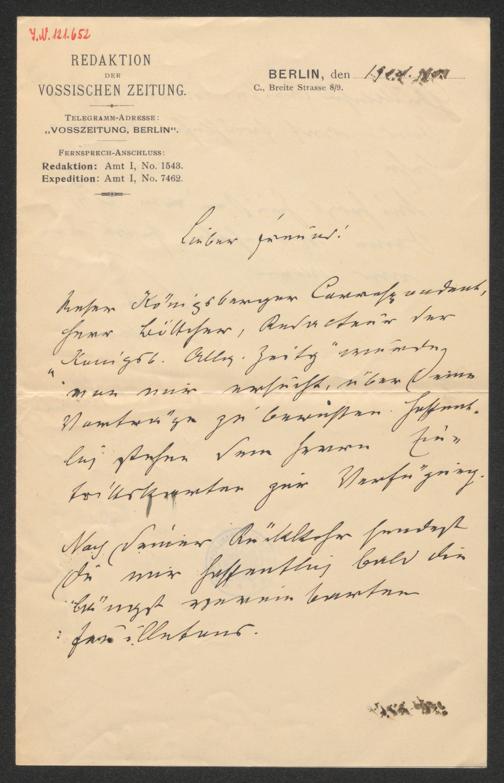 J.N. 121.652
REDAKTION
DER
VOSSISCHEN ZEITUNG.
TELEGRAMM-ADRESSE:
„VOSSZEITUNG, BERLIN“.
FERNSPRECH-ANSCHLUSS:
Redaktion: Amt I, No. 1543.
Expedition: Amt I, No. 7462.
BERLIN, den
C., Breite Strasse 8/9.
Lieber Freund!
Unser Königsberger Correspondent,
Herr Böttcher, Redacteur der
„Königsb. Allg. Zeitg“ wurde
von mir ersucht, über Deine
Vorträge zu berichten. Hoffent-
lich stehen dem Herrn Ein-
trittskarten zur Verfügung.
Nach Deiner Rückkehr sendest
Du mir hoffentlich bald die
längst vereinbarten
Feuilletons.